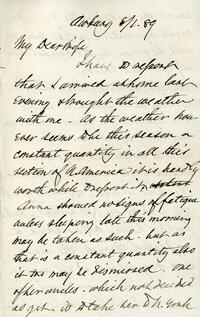 8/1. 89
My Dear Wife
I have to report
that I arrived at home last
Evening & brought the weather
with me. As the weather how
ever seems to be this season a
constant quantity in all this
section of N. America it is hardly
worth while to report it,
Anna showed no signs of fatigue
unless sleeping late this morning
may be taken as such - but as
that is a constant quantity also
it too may be dismissed. One
of her uncles - which not decided
as yet is to take her to N. York